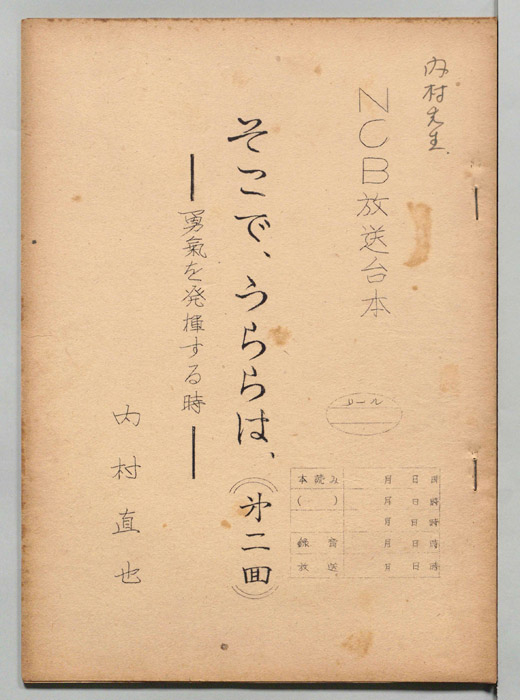 内村先生
NCB放送台本
そこで、うららは、（第二回）
―勇氣を発揮する時―
内村直也
ロール
本読み 月 日 時
（ ） 月 日 時
月 日 時
録音 月 日 時
放送 月 日 時